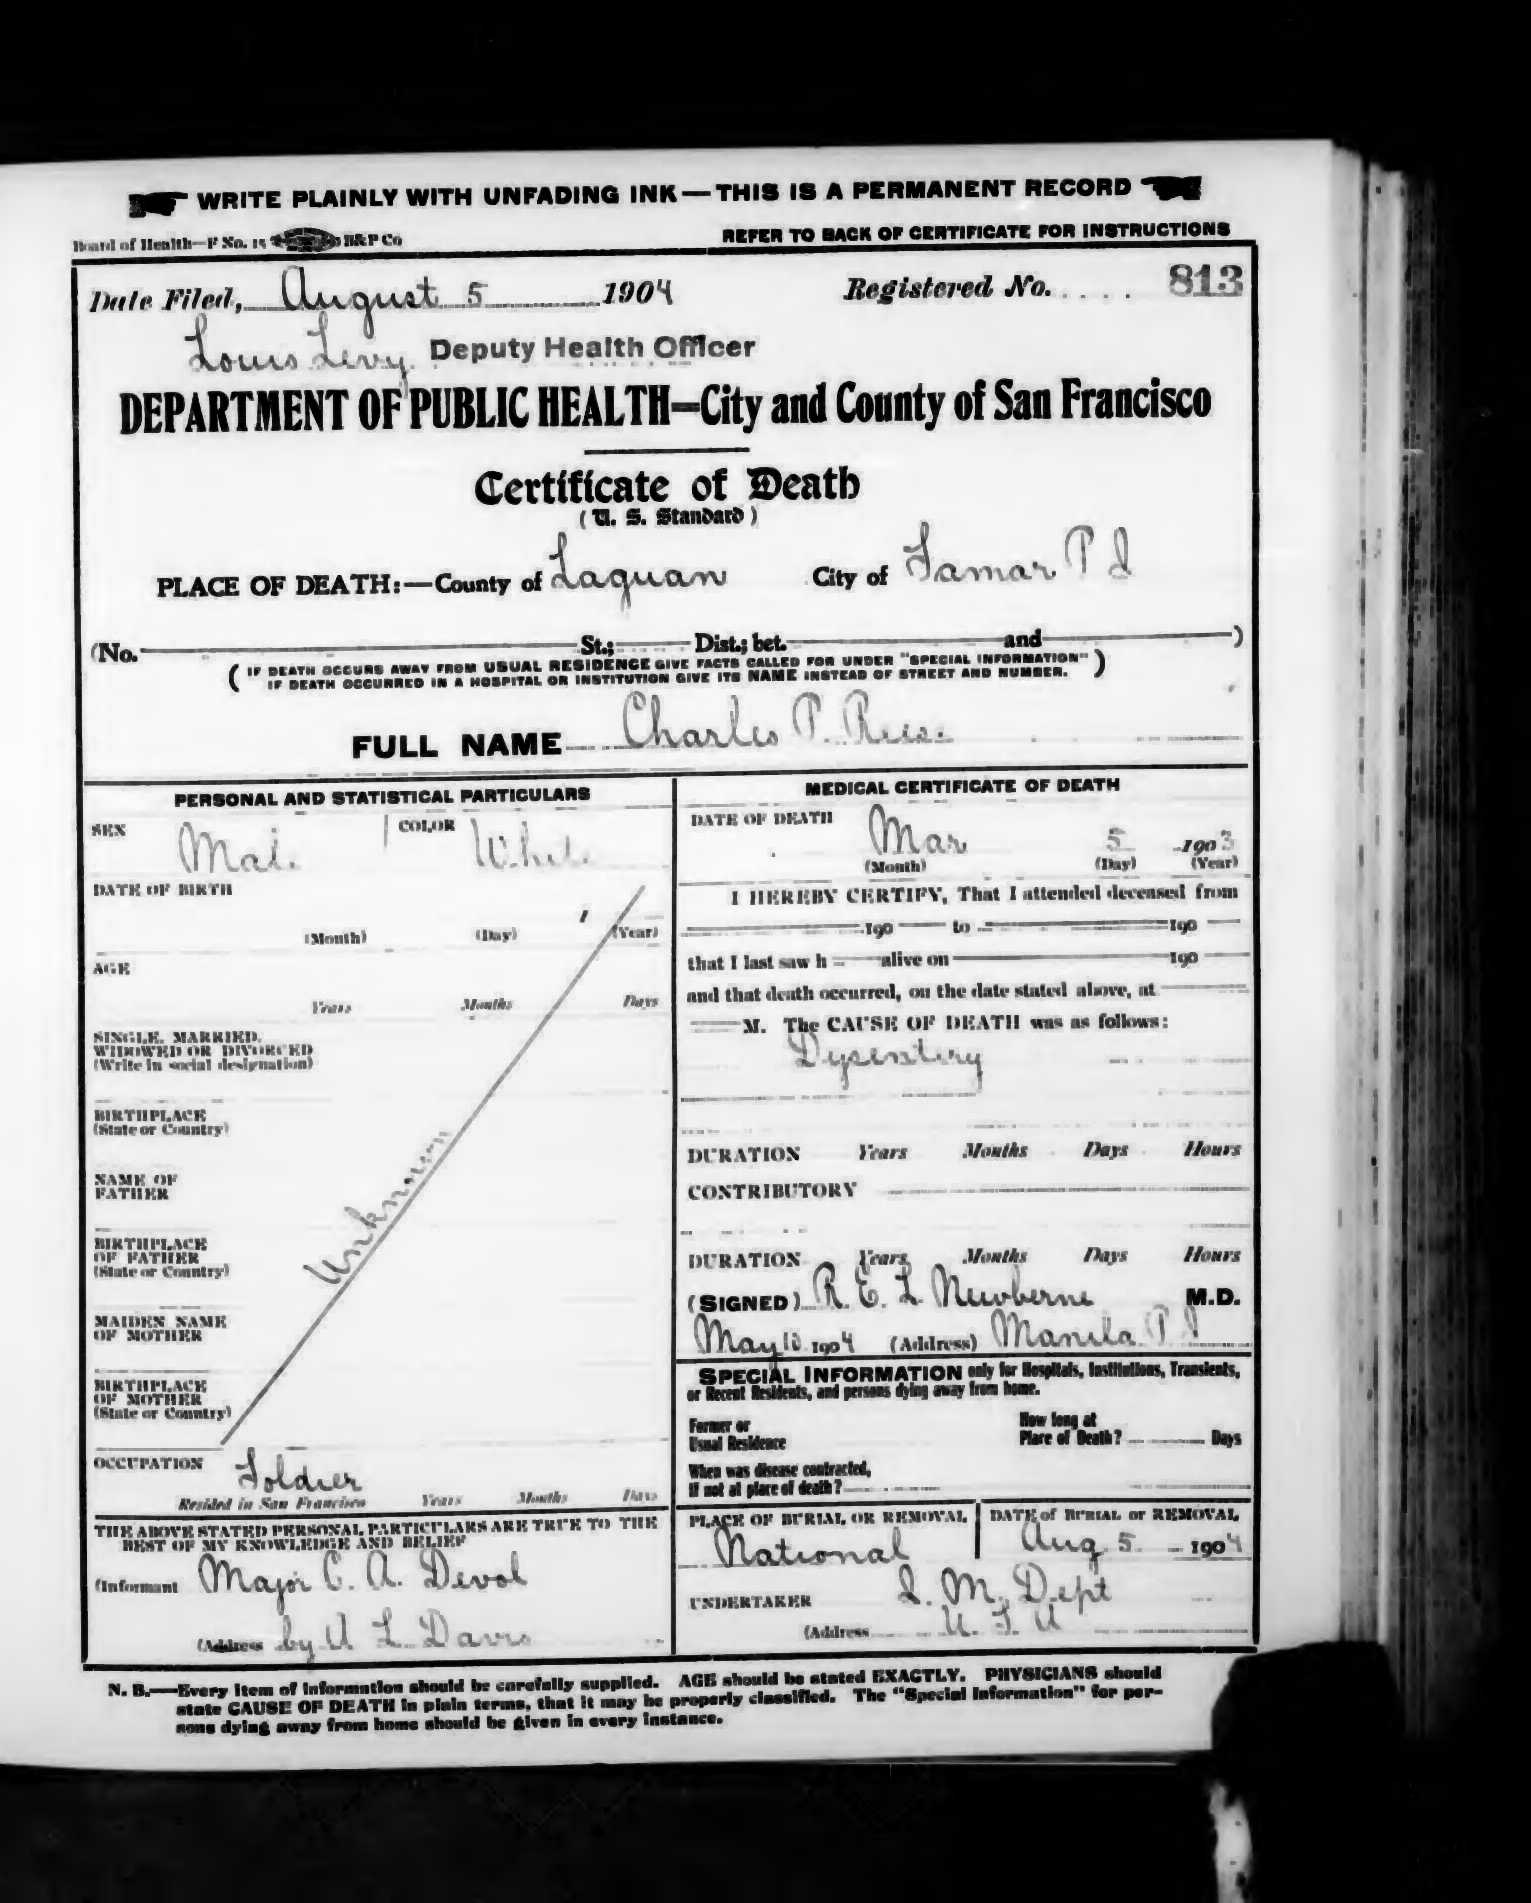 WRITE PLAINLY WITH UNFADING INK — THIS IS A PERMANENT RECORD
Board of Health—F No. 15 B&P Co
REFER TO BACK OF CERTIFICATE FOR INSTRUCTIONS
Date Filed, August 5 1904 Registered No. .... 813
Louis Levy Deputy Health Officer
DEPARTMENT OF PUBLIC HEALTH—City and County of San Francisco
Certificate of Death
(U. S. Standard)
PLACE OF DEATH:—County of Laguan City of Samar P I
(No. St.; Dist.; bet. and )
( IF DEATH OCCURS AWAY FROM USUAL RESIDENCE GIVE FACTS CALLED FOR UNDER "SPECIAL INFORMATION" )
IF DEATH OCCURRED IN A HOSPITAL OR INSTITUTION GIVE ITS NAME INSTEAD OF STREET AND NUMBER.
FULL NAME Charles P. Reese
PERSONAL AND STATISTICAL PARTICULARS
SEX Male COLOR White
DATE OF BIRTH
(Month) (Day) (Year)
AGE
Years Months Days
SINGLE, MARRIED,
WIDOWED OR DIVORCED
(Write in social designation)
BIRTHPLACE
(State or Country)
NAME OF
FATHER
Unknown
BIRTHPLACE
OF FATHER
(State or Country)
MAIDEN NAME
OF MOTHER
BIRTHPLACE
OF MOTHER
(State or Country)
OCCUPATION Soldier
Resided in San Francisco Years Months Days
THE ABOVE STATED PERSONAL PARTICULARS ARE TRUE TO THE
BEST OF MY KNOWLEDGE AND BELIEF
(Informant Major C. A. Devol
(Address by A L Davis
MEDICAL CERTIFICATE OF DEATH
DATE OF DEATH
Mar 5 1903
(Month) (Day) (Year)
I HEREBY CERTIFY, That I attended deceased from
190 to 190
that I last saw h alive on 190
and that death occurred, on the date stated above, at
M. The CAUSE OF DEATH was as follows:
Dysentery
DURATION Years Months Days Hours
CONTRIBUTORY
DURATION Years Months Days Hours
(SIGNED) R. E. L. Newberne M.D.
May 10 1904 (Address) Manila P I
SPECIAL INFORMATION only for Hospitals, Institutions, Transients,
or Recent Residents, and persons dying away from home.
Former or
Usual Residence
How long at
Place of Death? Days
When was disease contracted,
If not at place of death?
PLACE OF BURIAL OR REMOVAL DATE of BURIAL or REMOVAL
National Aug 5 1904
UNDERTAKER Q. M. Dept
(Address U. S. A
N. B.—Every item of information should be carefully supplied. AGE should be stated EXACTLY. PHYSICIANS should
state CAUSE OF DEATH in plain terms, that it may be properly classified. The "Special Information" for per-
sons dying away from home should be given in every instance.